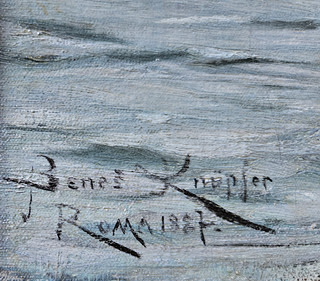 Beneš Knüpfer
Roma 1887.